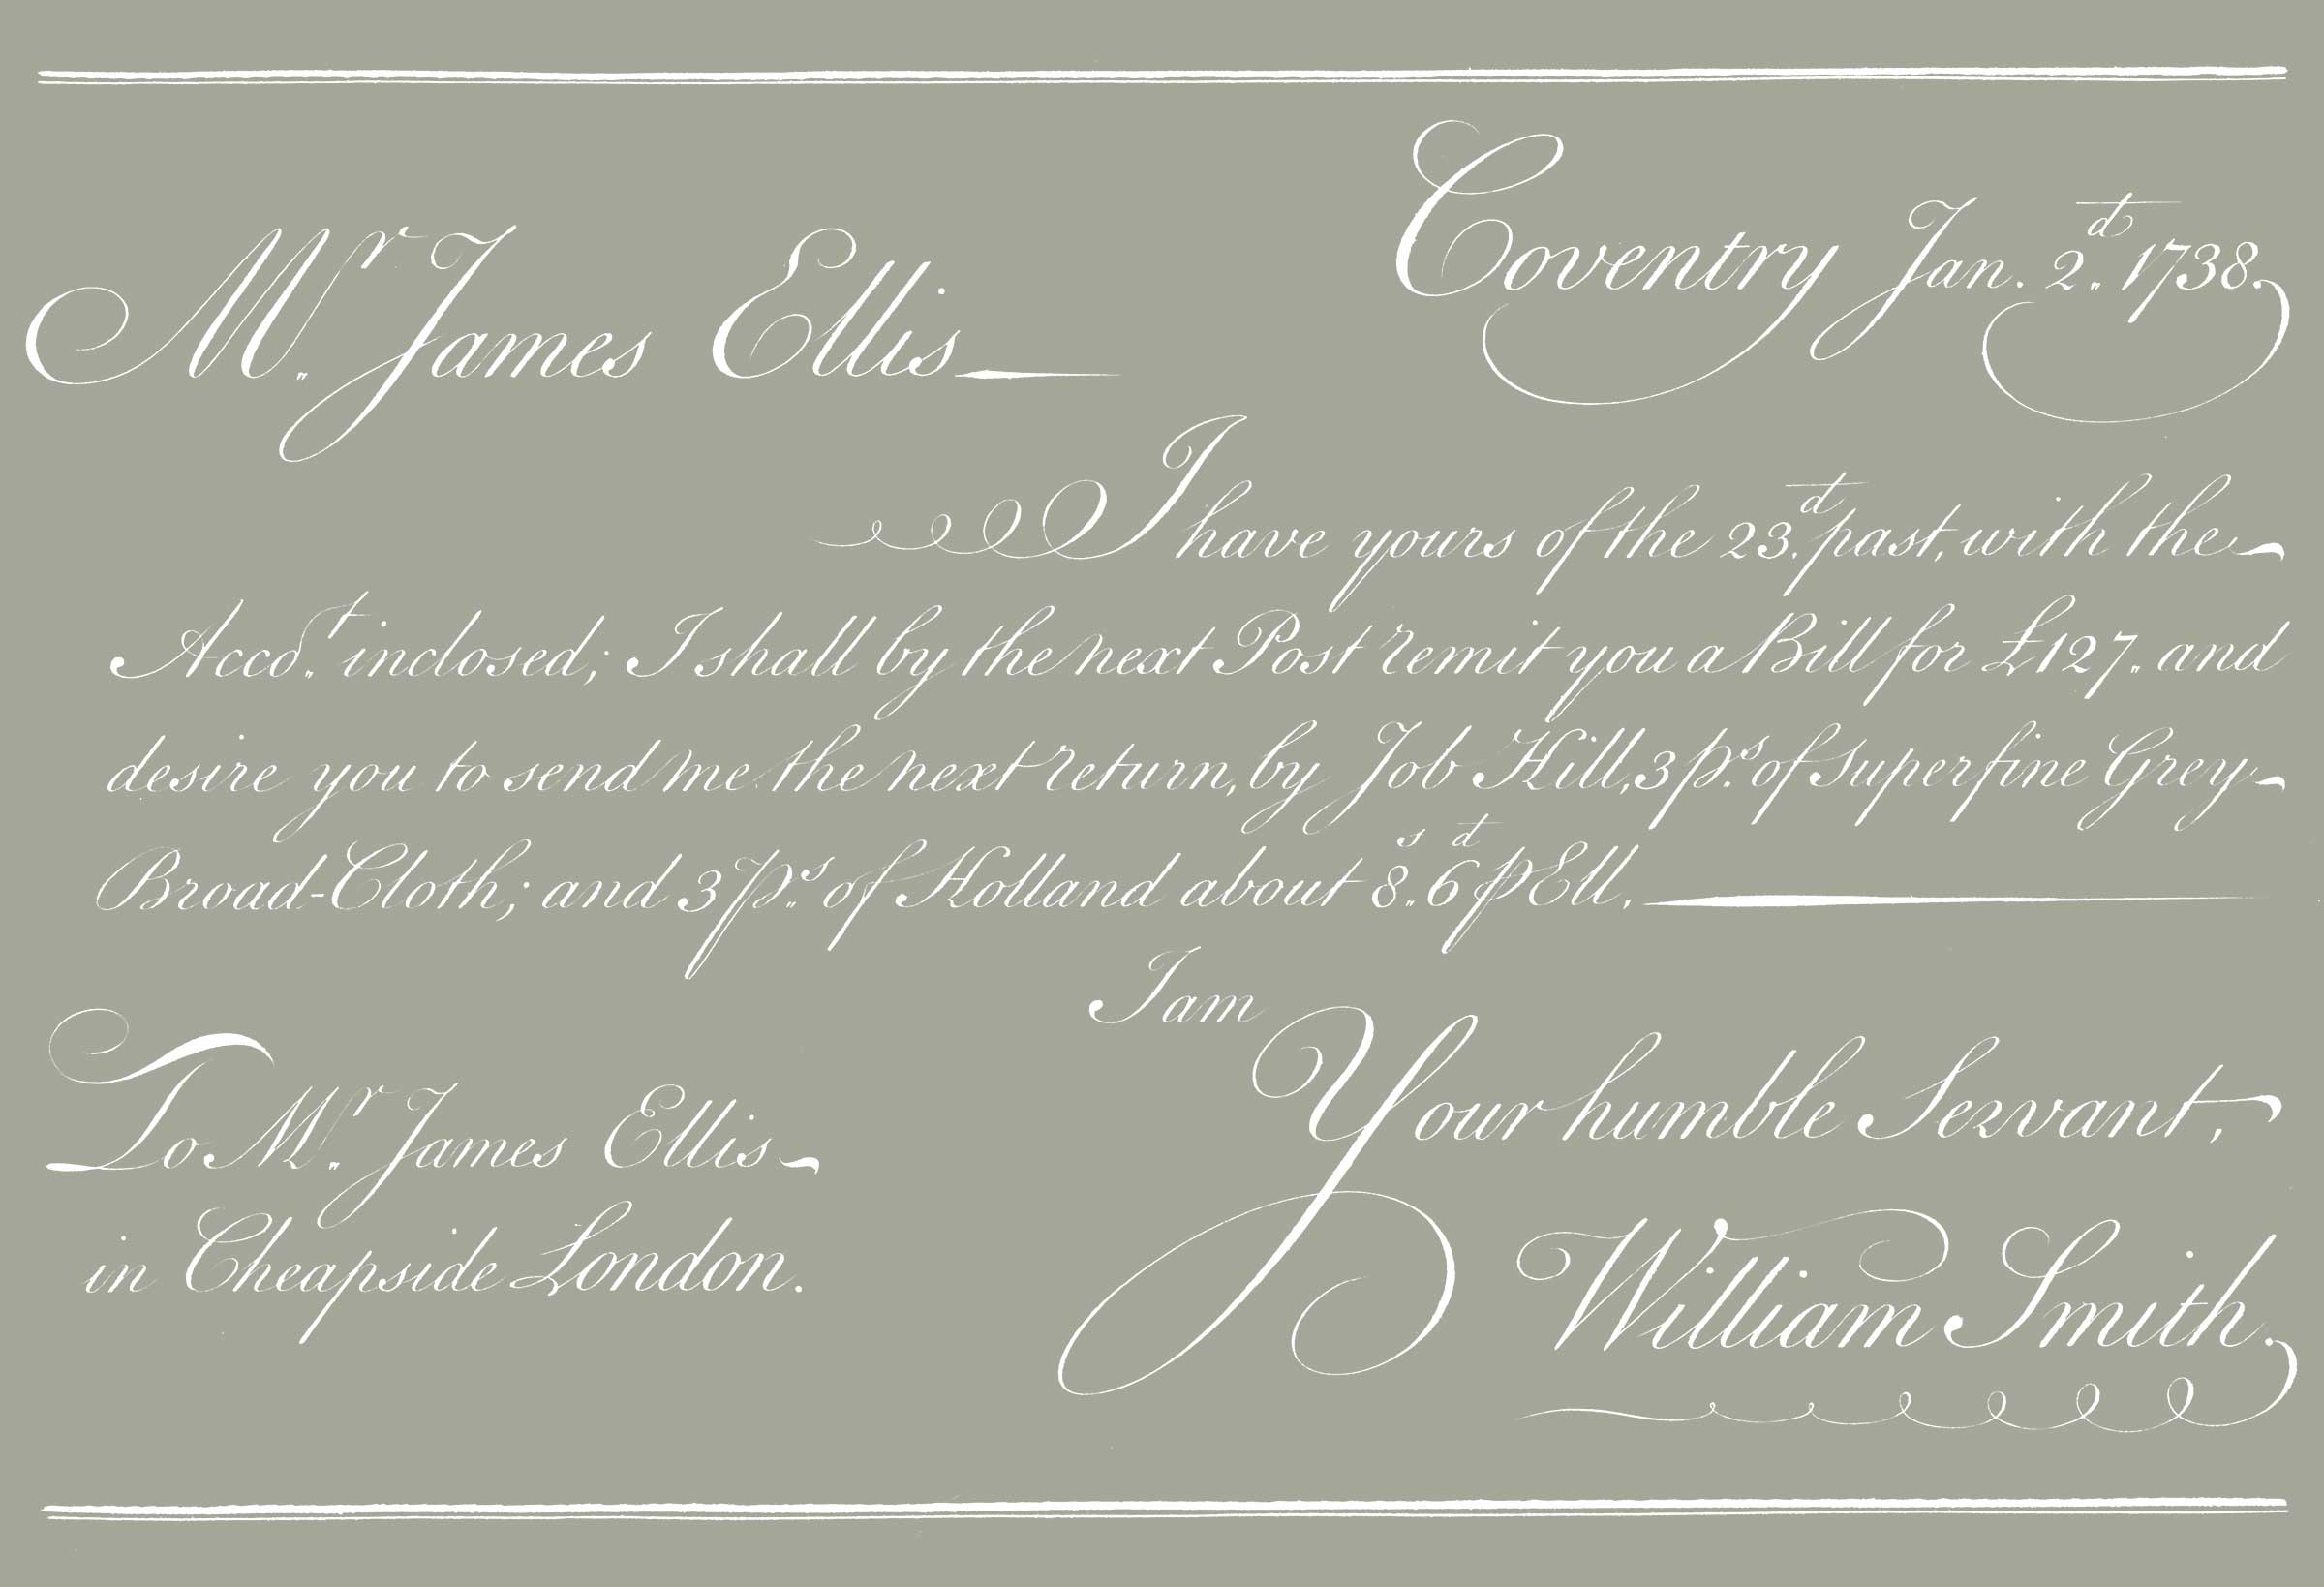 Coventry Jan. 2.d 1738.
Mr. James Ellis
I have yours of the 23.d past, with the
Acco.t inclosed; I shall by the next Post remit you a Bill for £127. and
desire you to send me the next return, by Job Hill, 3 p.s of superfine Grey
Broad-Cloth; and 3 p.s of Holland about 8.s 6.d ⅌ Ell.
I am
Your humble Servant,
William Smith.
To Mr. James Ellis
in Cheapside London.